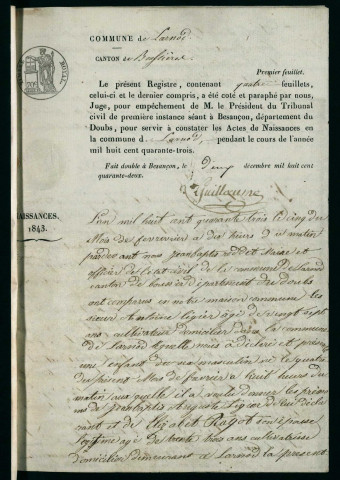 COMMUNE de Larnod
CANTON de Boussières
Premier feuillet.
Le présent Registre, contenant quatre feuillets,
celui-ci et le dernier compris, a été coté et paraphé par nous,
Juge, pour empêchement de M. le Président du Tribunal
civil de première instance séant à Besançon, département du
Doubs, pour servir à constater les Actes de Naissances en
la commune de Larnod, pendant le cours de l'année
mil huit cent quarante-trois.
Fait double à Besançon, le deux décembre mil huit cent
quarante-deux.
Guillaume
NAISSANCES.
1843.
L'an mil huit cent quarante trois le cinq du
Mois de fevrerier a dix heurs du matin
pardevant nous jeanbaptiste maire et
officier de letat civil de la commune de Larnod
canton de boussier département du doubs
ont comparus en notre maison commune les
sieur Antoine Ligier agé de vingt sept
ans cultivateur domicilier dans la commune
de Larnod lequelle nous a déclaré et présenté
une enfant du masculin né le quatre
du présent Mois de fevrier a huit heurs du
matin auquelle il a voulu donner les prénoms
de jeanbaptiste auguste Ligier de lui décla
rant et de Elizabet Chagot son épouse
légitime agé de trente trois ans cultivatrice
domicilier demeurant a Larnod la présent